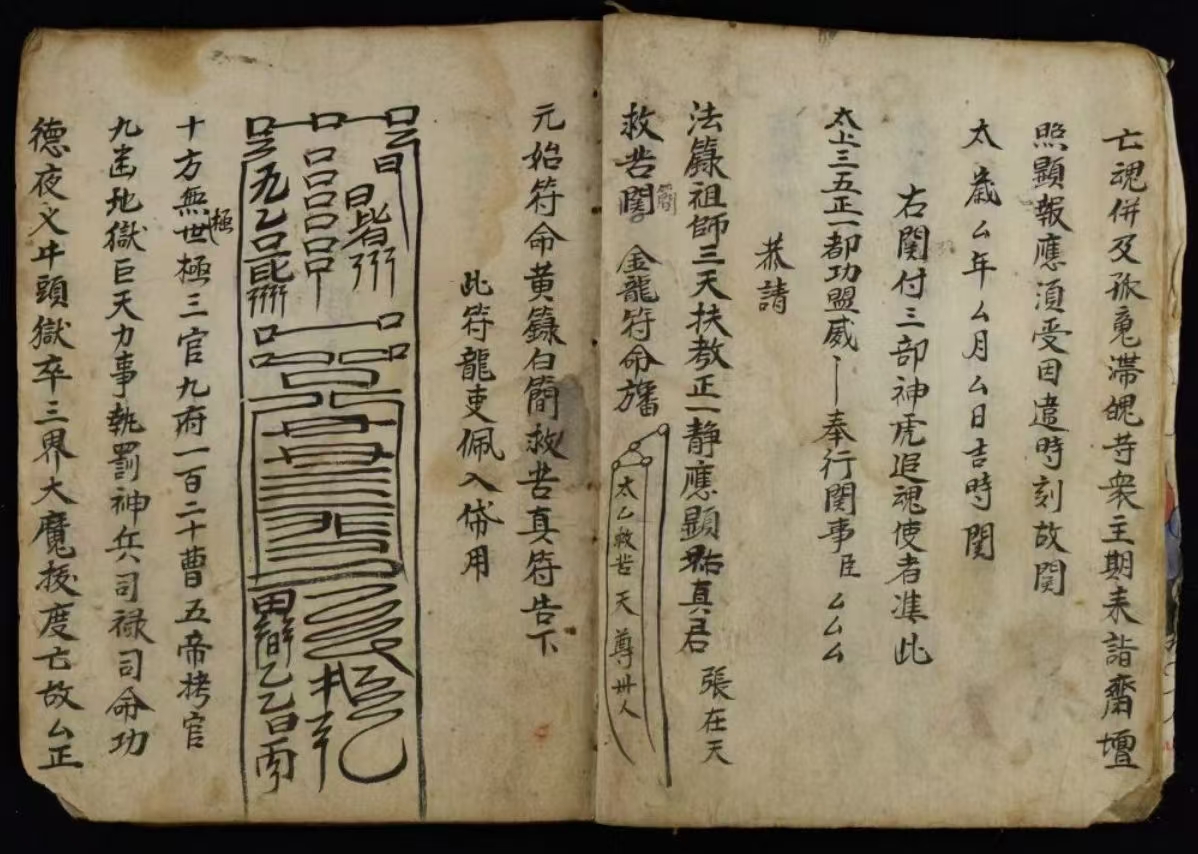 亡魂併及孤䰟滯魄等衆主期来詣齋壇
照顯報應須受因違時刻故関
太歲厶年厶月厶日吉時関
右関付三部神虎追魂使者准此
太上三五正一都功盟威丨奉行関事臣厶厶厶
恭請
法籙祖師三天扶教正一静應顯佑真君 張在天
救苦関簡 金龍符命旛
太乙救苦天尊卅人
元始符命黄籙白簡救苦真符告下
此符龍吏佩入俗用
十方無極世極三官九府一百二十曹五帝拷官
九幽地獄巨天力事執罰神兵司禄司命功
德夜叉牛頭獄卒三界大魔援度亡故厶正